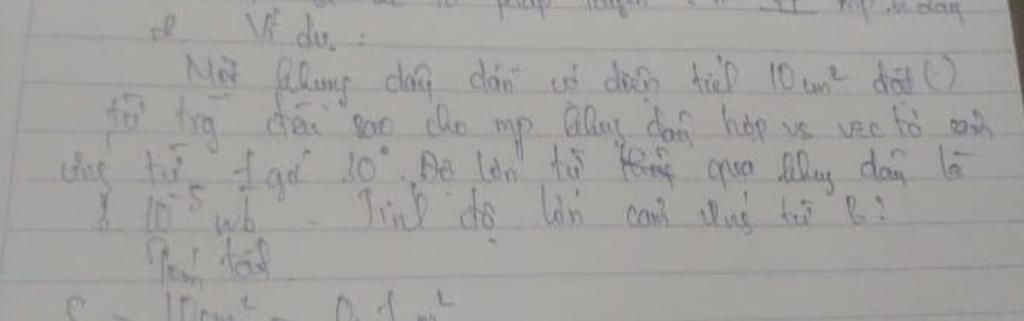 pháp
Ví dụ :
Một khung dây dẫn có diện tích 10 cm² đặt (·)
từ trg đều sao cho mp khung dây hợp vs vec tơ cảm
ứng từ 1 góc 30°. Độ lớn từ thông qua khung dây là
10⁻⁵ wb. Tính độ lớn cảm ứng từ B?
Tóm tắt
10cm² =